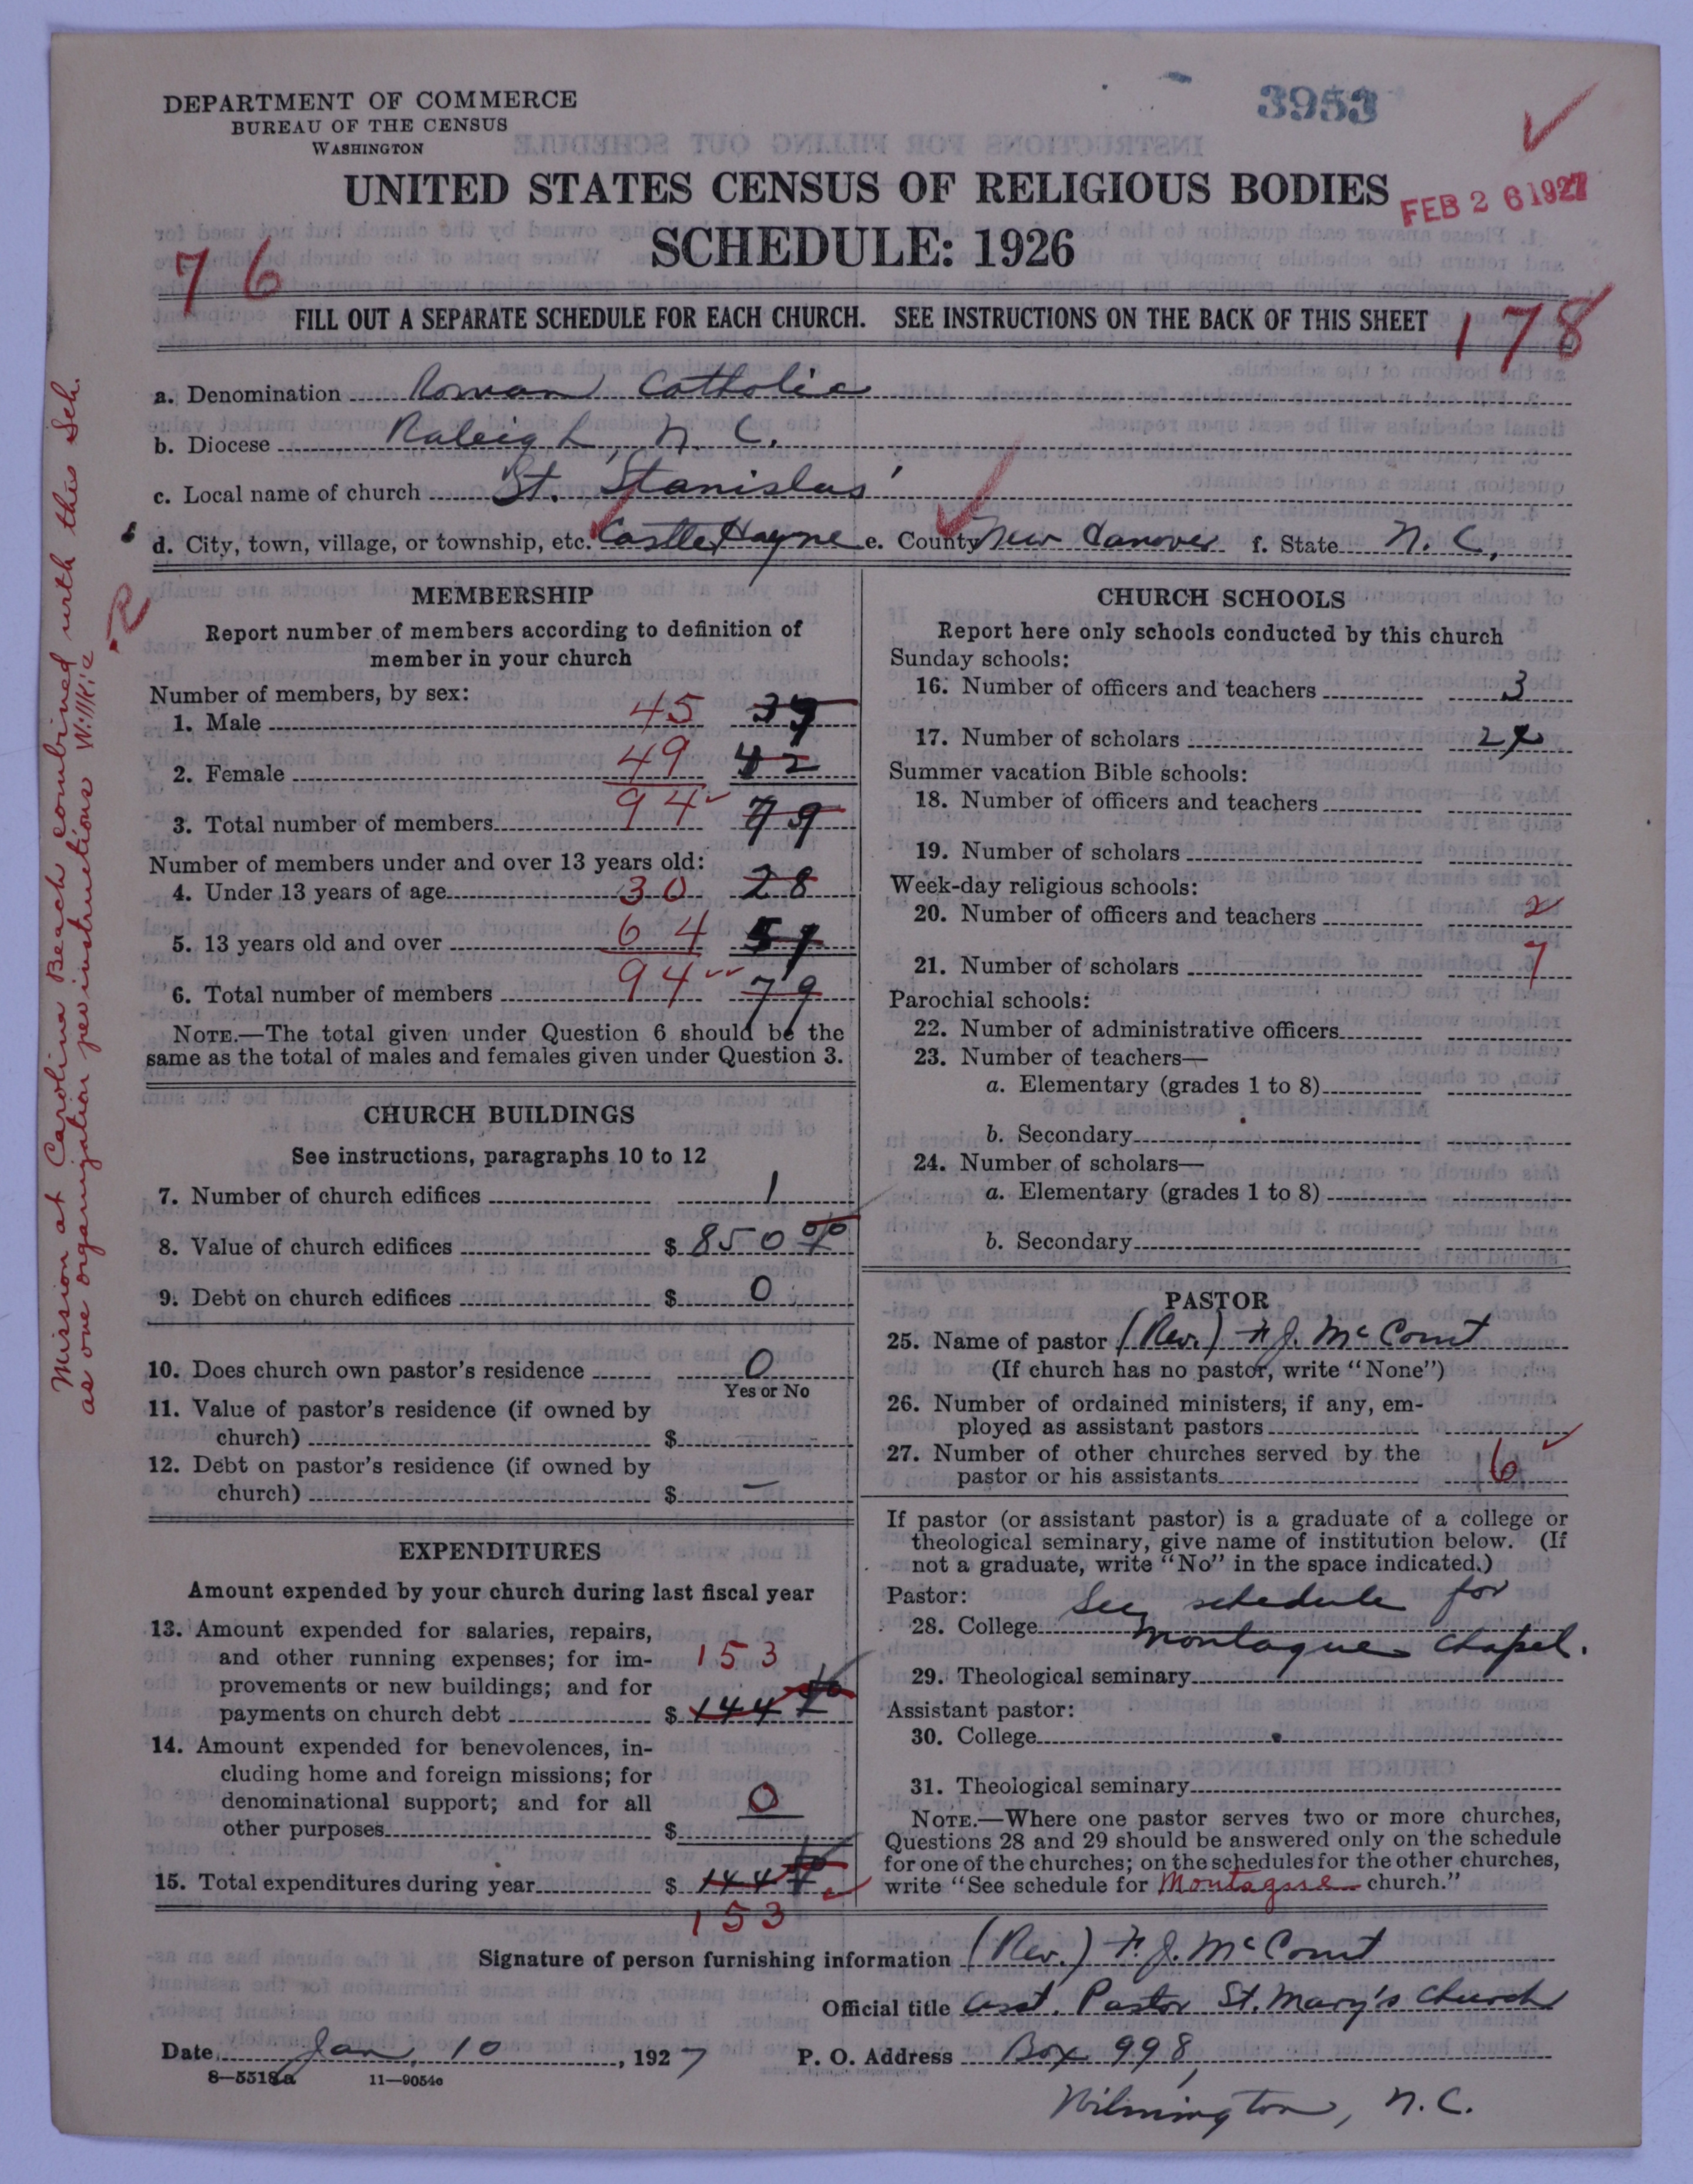 3953
DEPARTMENT OF COMMERCE
BUREAU OF THE CENSUS
WASHINGTON
UNITED STATES CENSUS OF RELIGIOUS BODIES
FEB 26 1927
SCHEDULE: 1926
76
FILL OUT A SEPARATE SCHEDULE FOR EACH CHURCH. SEE INSTRUCTIONS ON THE BACK OF THIS SHEET
178
a. Denomination Roman Catholic
b. Diocese Raleigh, N. C.
c. Local name of church St. Stanislas'
d. City, town, village, or township, etc. Castle Hayne e. County New Hanover f. State N. C.
Mission at Carolina Beach combined with this Sch.
as one organization per instructions Willkie
2
MEMBERSHIP
Report number of members according to definition of
member in your church
Number of members, by sex:
1. Male 45 37
2. Female 49 42
3. Total number of members 94 79
Number of members under and over 13 years old:
4. Under 13 years of age 30 28
5. 13 years old and over 64 51
6. Total number of members 94 79
NOTE.—The total given under Question 6 should be the
same as the total of males and females given under Question 3.
CHURCH BUILDINGS
See instructions, paragraphs 10 to 12
7. Number of church edifices 1
8. Value of church edifices $ 850
9. Debt on church edifices $ 0
10. Does church own pastor's residence 0
Yes or No
11. Value of pastor's residence (if owned by
church) $ —
12. Debt on pastor's residence (if owned by
church) $ —
EXPENDITURES
Amount expended by your church during last fiscal year
13. Amount expended for salaries, repairs,
and other running expenses; for im-
provements or new buildings; and for
payments on church debt $ 144
153
14. Amount expended for benevolences, in-
cluding home and foreign missions; for
denominational support; and for all
other purposes $ 0
15. Total expenditures during year $ 144
153
CHURCH SCHOOLS
Report here only schools conducted by this church
Sunday schools:
16. Number of officers and teachers 3
17. Number of scholars
Summer vacation Bible schools:
18. Number of officers and teachers
19. Number of scholars
Week-day religious schools:
20. Number of officers and teachers 2
21. Number of scholars 7
Parochial schools:
22. Number of administrative officers
23. Number of teachers—
a. Elementary (grades 1 to 8)
b. Secondary
24. Number of scholars—
a. Elementary (grades 1 to 8)
b. Secondary
PASTOR
25. Name of pastor (Rev.) F. J. McCourt
(If church has no pastor, write "None")
26. Number of ordained ministers, if any, em-
ployed as assistant pastors
27. Number of other churches served by the
pastor or his assistants 6
If pastor (or assistant pastor) is a graduate of a college or
theological seminary, give name of institution below. (If
not a graduate, write "No" in the space indicated.)
Pastor: See schedule for
28. College Montague Chapel.
29. Theological seminary
Assistant pastor:
30. College
31. Theological seminary
NOTE.—Where one pastor serves two or more churches,
Questions 28 and 29 should be answered only on the schedule
for one of the churches; on the schedules for the other churches,
write "See schedule for Montague church."
Signature of person furnishing information (Rev.) F. J. McCourt
Official title Asst. Pastor St. Mary's Church
Date Jan. 10, 1927 P. O. Address Box 998,
8—5518a 11—9054c
Wilmington, N.C.